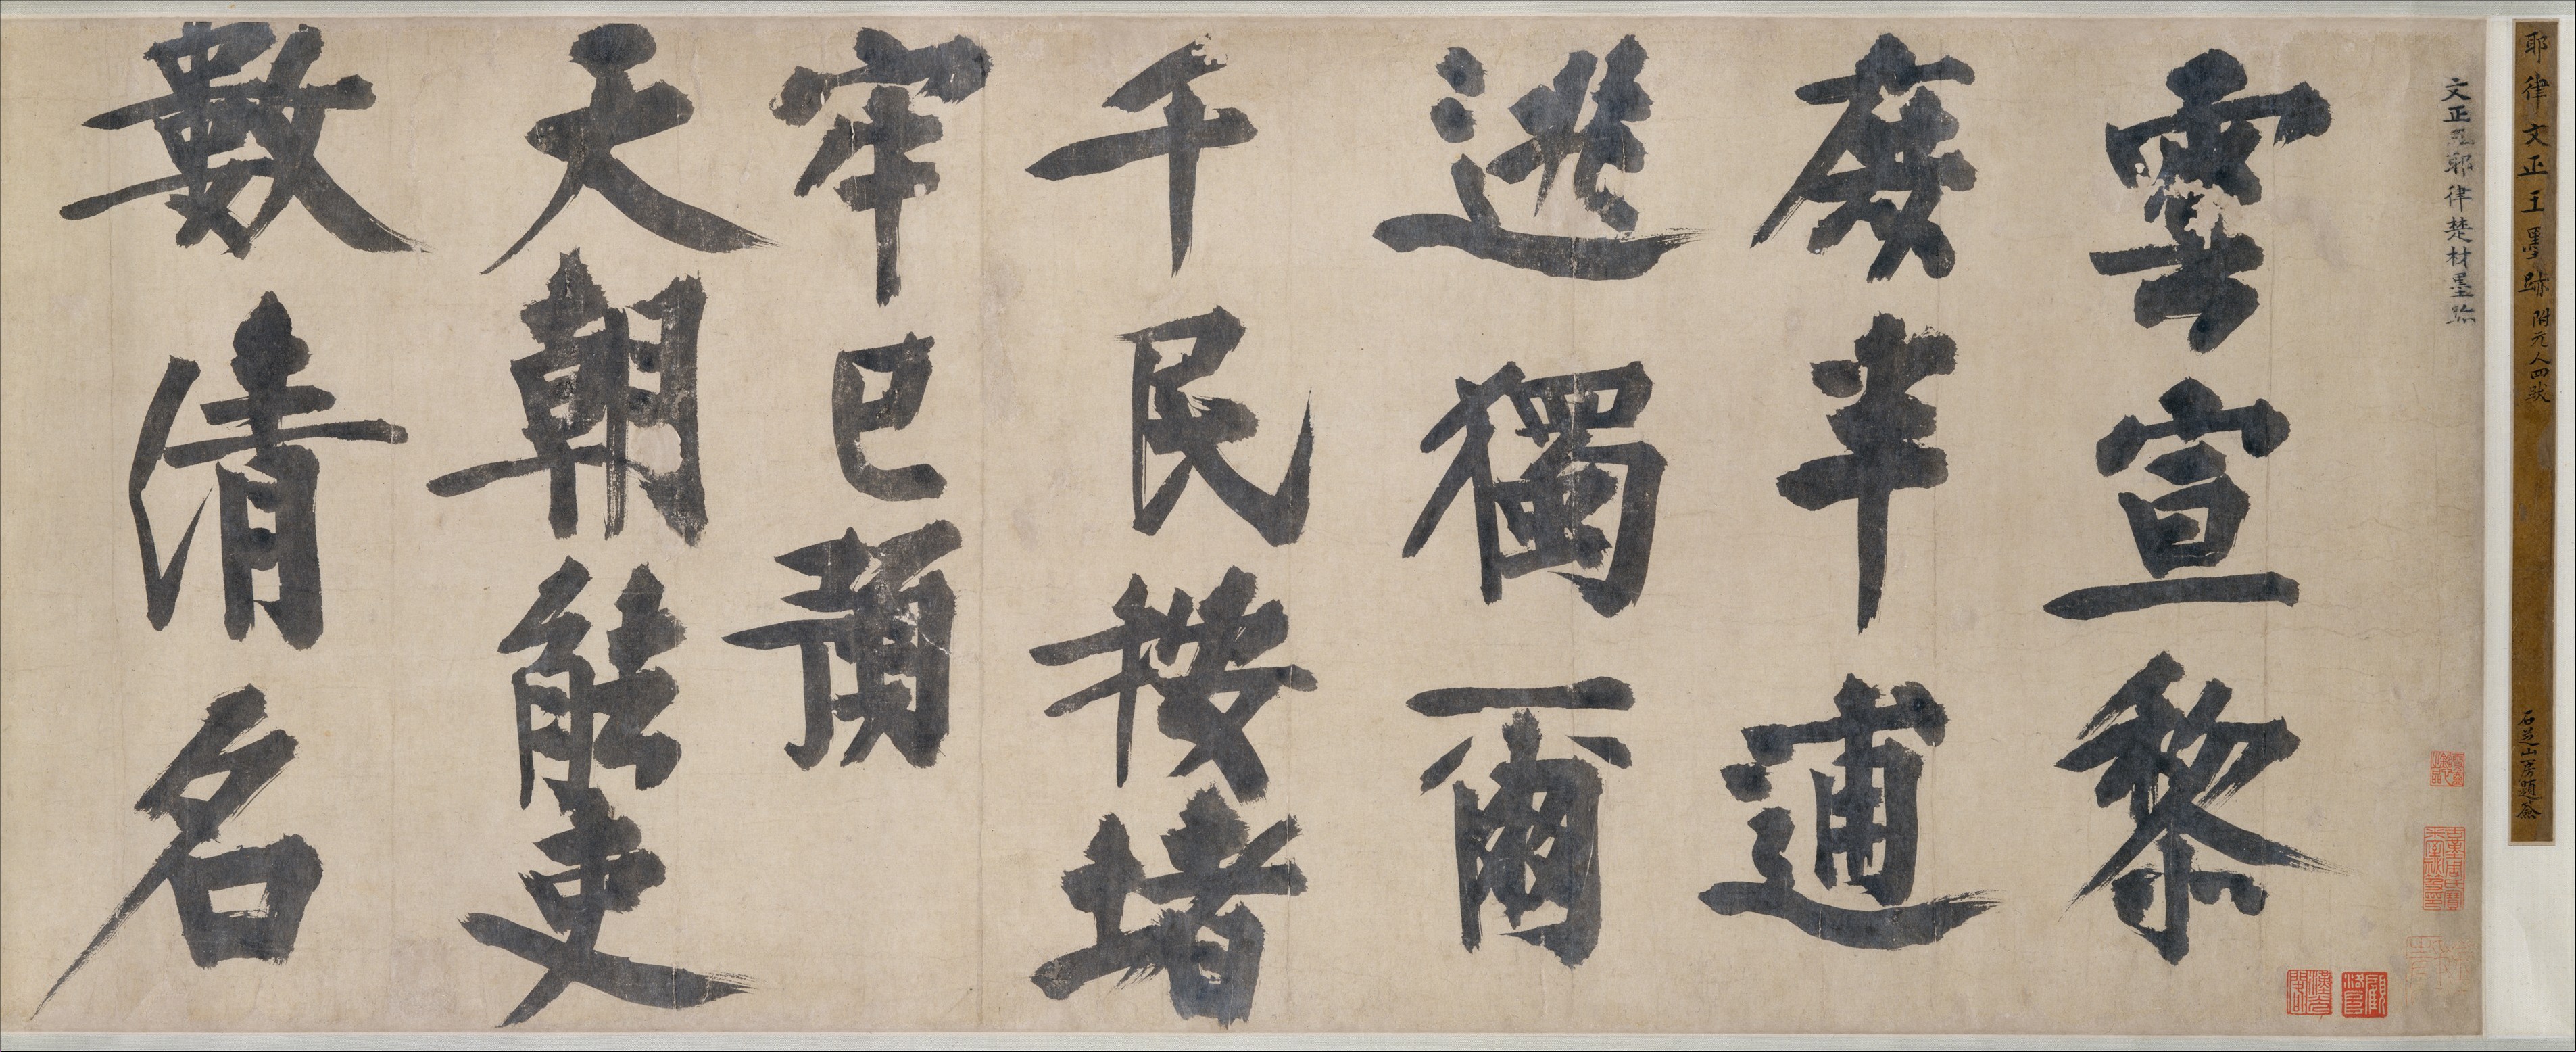 耶律文正王墨跡 附元人四跋
石芝山房題簽
文正王耶律楚材墨跡
雲宣黎
庶半逋
逃獨爾
千民按堵
牢已預
天朝能吏
數清名